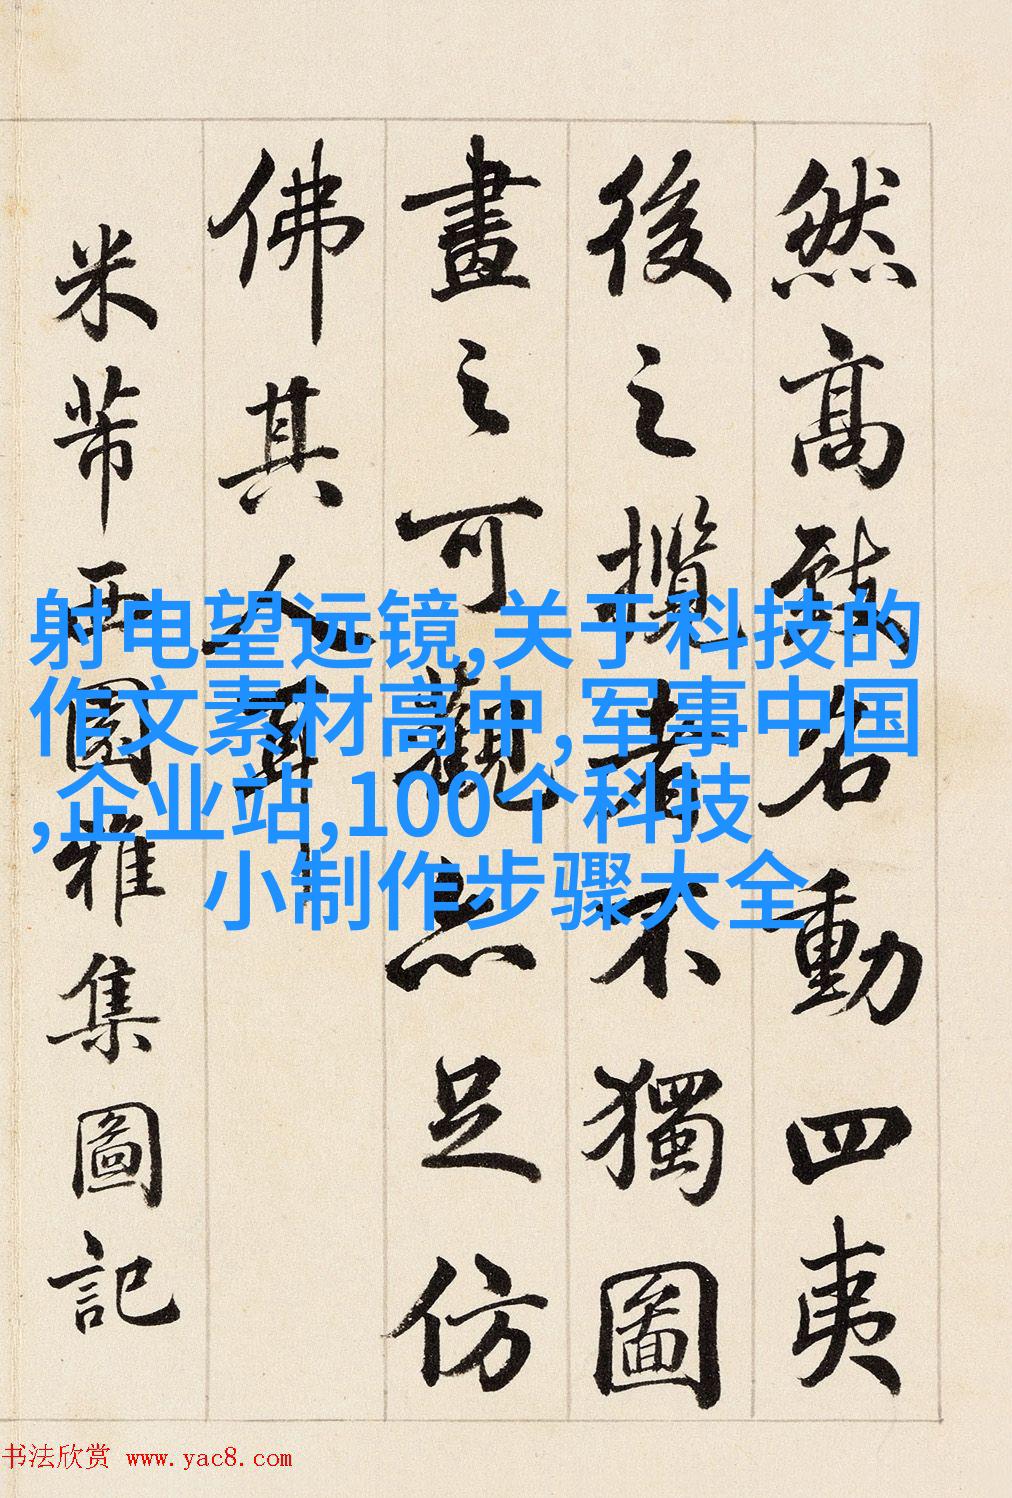 然高致名動四夷
後之攬者不獨圖
畫之可觀亦足仿
佛其人耳
米芾西園雅集圖記
射电望远镜,关于科技的
作文素材高中,军事中国
,企业站,100个科技
小制作步骤大全
书法欣赏 www.yac8.com